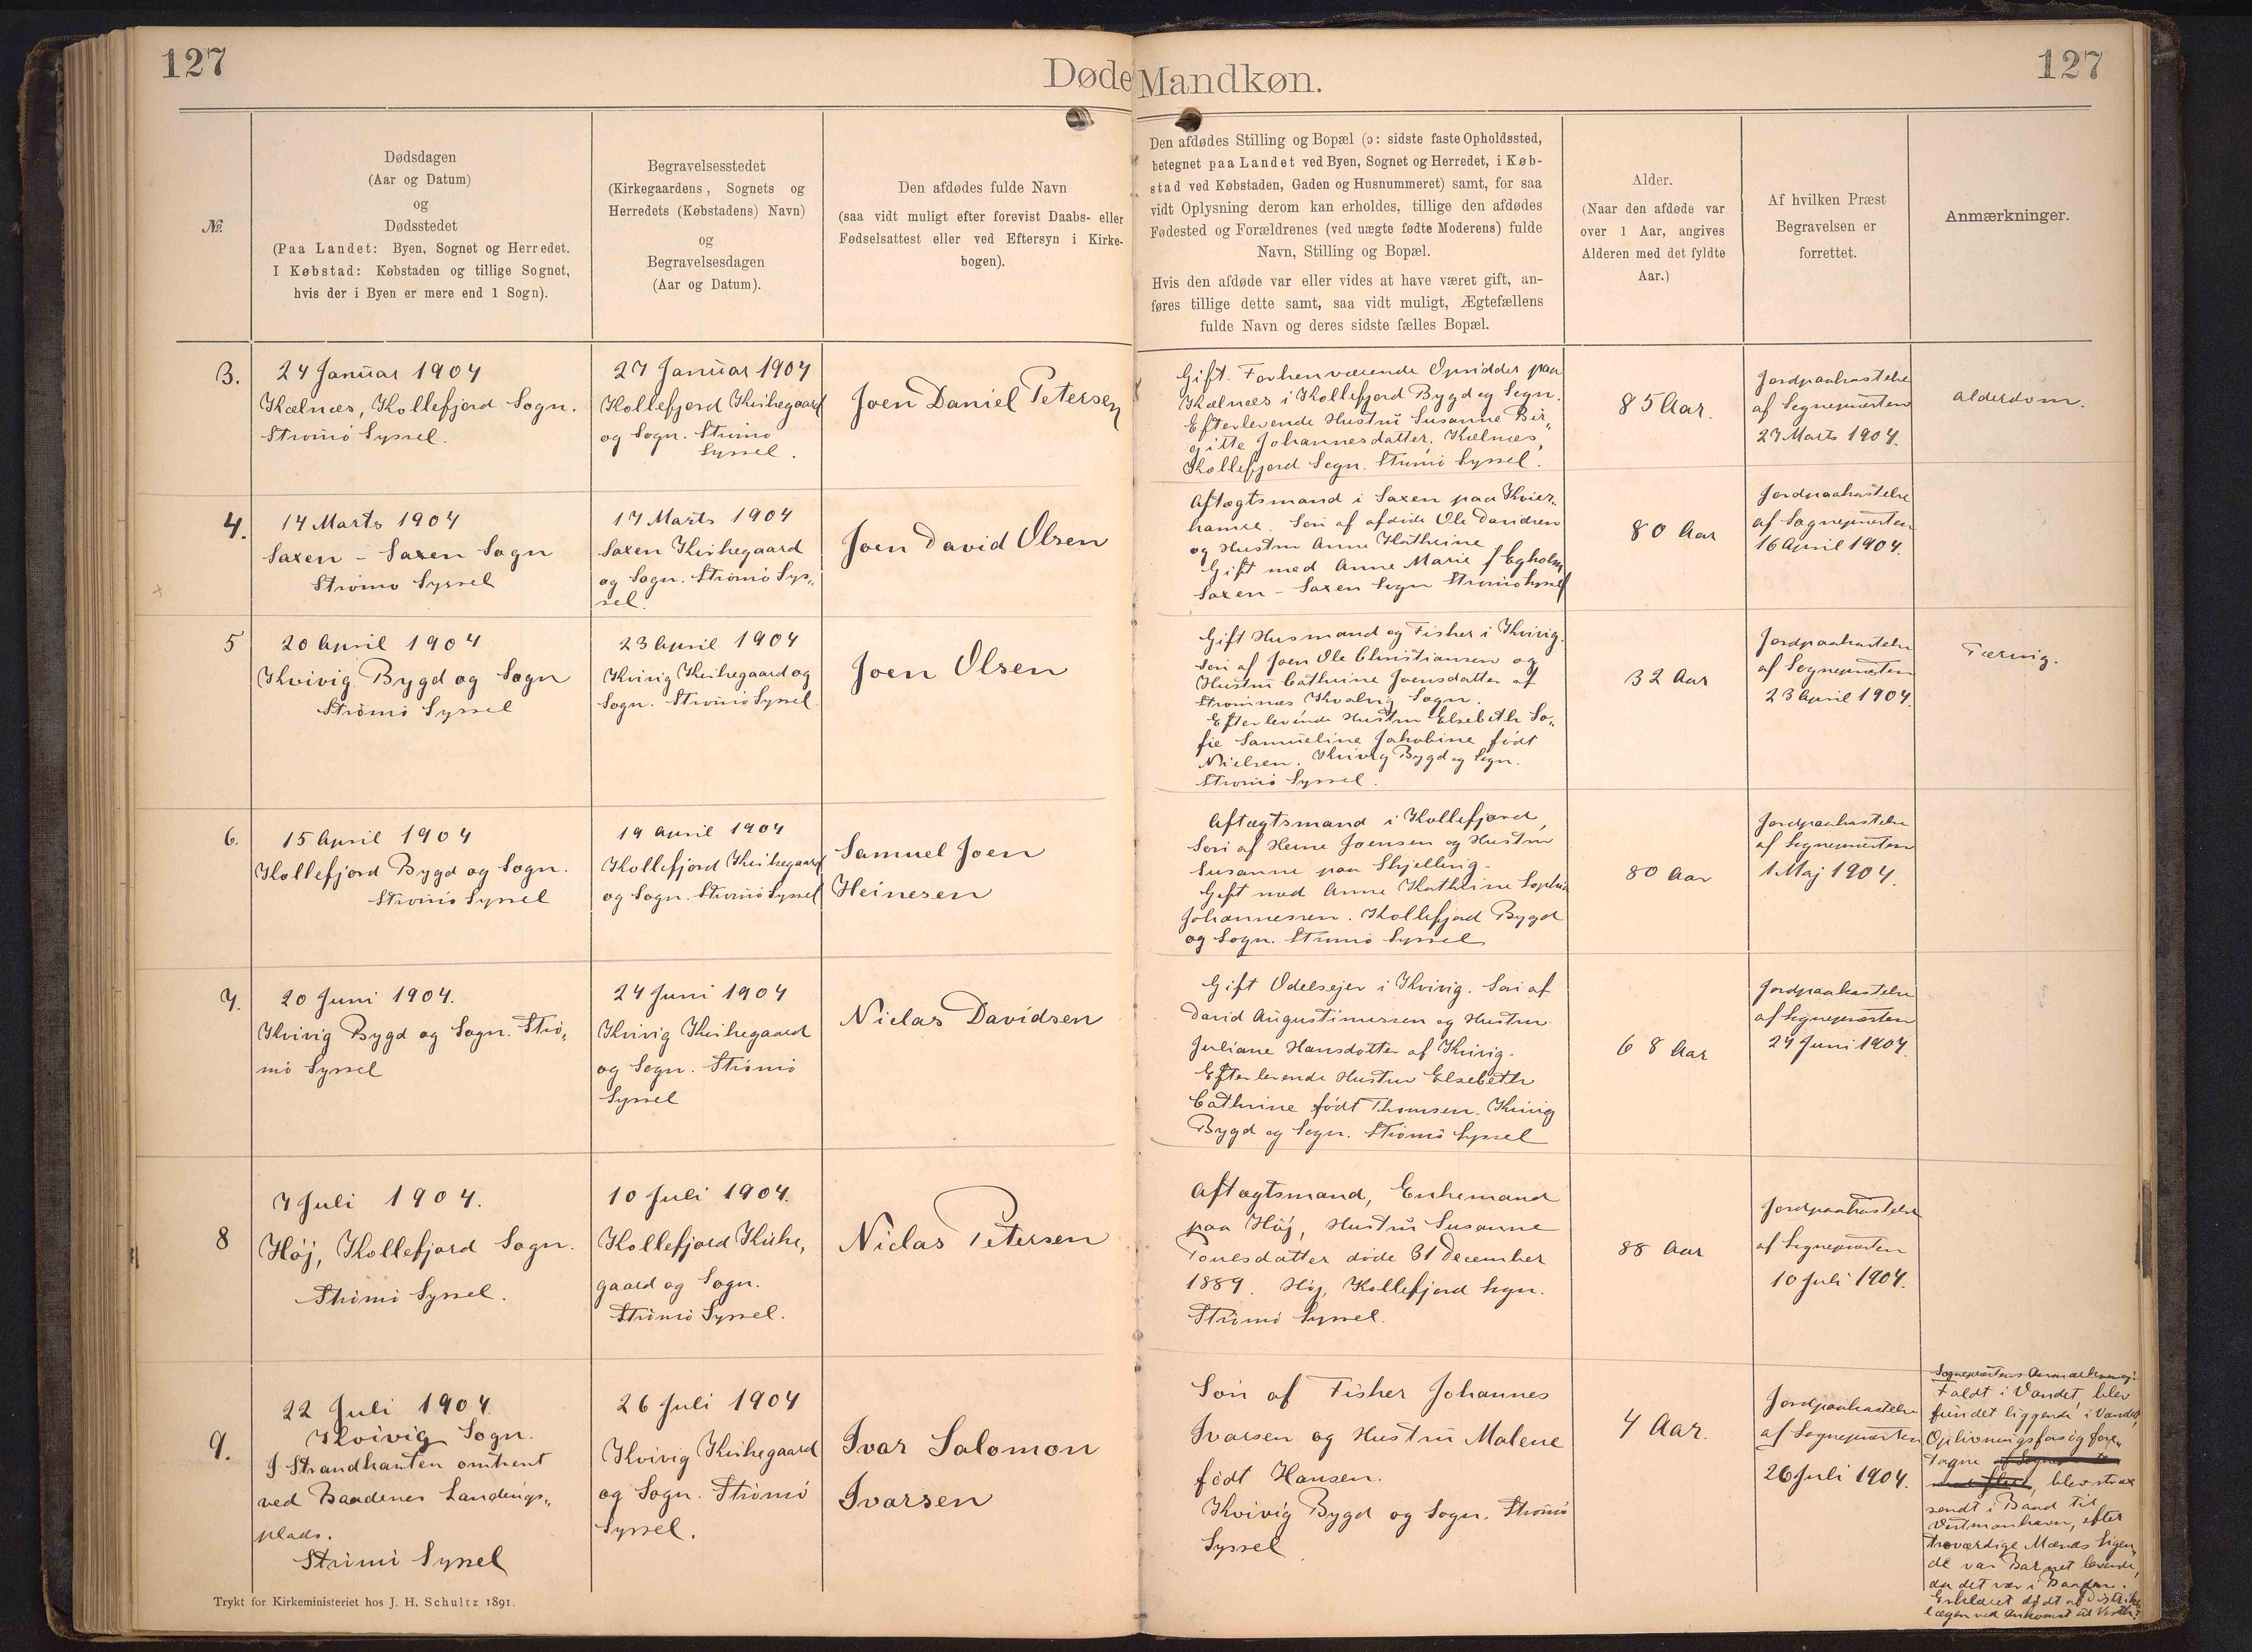 127
127
Døde Mandkøn.
№
Dødsdagen
(Aar og Datum)
og
Dødsstedet
(Paa Landet: Byen, Sognet og Herredet.
I Købstad: Købstaden og tillige Sognet,
hvis der i Byen er mere end 1 Sogn).
Begravelsesstedet
(Kirkegaardens, Sognets og
Herredets (Købstadens) Navn)
og
Begravelsesdagen
(Aar og Datum).
Den afdødes fulde Navn
(saa vidt muligt efter forevist Daabs- eller
Fødselsattest eller ved Eftersyn i Kirke-
bogen).
Den afdødes Stilling og Bopæl (ɔ: sidste faste Opholdssted,
betegnet paa Landet ved Byen, Sognet og Herredet, i Køb-
stad ved Købstaden, Gaden og Husnummeret) samt, for saa
vidt Oplysning derom kan erholdes, tillige den afdødes
Fødested og Forældrenes (ved uægte fødte Moderens) fulde
Navn, Stilling og Bopæl.
Hvis den afdøde var eller vides at have været gift, an-
føres tillige dette samt, saa vidt muligt, Ægtefællens
fulde Navn og deres sidste fælles Bopæl.
Alder.
(Naar den afdøde var
over 1 Aar, angives
Alderen med det fyldte
Aar.)
Af hvilken Præst
Begravelsen er
forrettet.
Anmærkninger.
3.
24 Januar 1904
Kælnæs, Kollefjord Sogn.
Strömö Syssel.
27 Januar 1904
Kollefjord Kirkegaard
og Sogn. Strömö
Syssel.
Joen Daniel Petersen
Gift. Forhenværende Opsidder paa
Kælnæs i Kollefjord Bygd og Sogn.
Efterlevende Hustru Susanne Bir„
gitte Johannesdatter. Kælnæs,
Kollefjord Sogn. Strömö Syssel.
85 Aar.
Jordpaakastelse
af Sognepræsten
27 Marts 1904.
Alderdom.
4.
14 Marts 1904
Saxen - Saxen Sogn
Strömö Syssel
17 Marts 1904
Saxen Kirkegaard
og Sogn. Strömö Sys„
sel.
Joen David Olsen
Aftægtsmand i Saxen paa
Sön af afdöde Ole Davidsen
og Hustru Anne Kathrine
Gift med Anne Marie f Egholm
Saxen - Saxen Sogn Strömö Syssel
80 Aar
Jordpaakastelse
af Sognepræsten
16 April 1904.
5
20 April 1904
Kvivig Bygd og Sogn
Strömö Syssel
23 April 1904
Kvivig Kirkegaard og
Sogn. Strömö Syssel.
Joen Olsen
Gift Husmand og Fisker i Kvivig.
Sön af Joen Ole Christiansen og
Hustru Cathrine Joensdatter af
Strömnæs Kvalvig Sogn.
Efterlevende Hustru Elsebeth So„
fie Samueline Jakobine födt
Nielsen. Kvivig Bygd og Sogn.
Strömö Syssel.
32 Aar
Jordpaakastelse
af Sognepræsten
23 April 1904.
Tæring.
6.
15 April 1904
Kollefjord Bygd og Sogn.
Strömö Syssel
19 April 1904
Kollefjord Kirkegaard
og Sogn. Strömö Syssel
Samuel Joen
Heinesen
Aftægtsmand i Kollefjord,
Sön af Heine Joensen og Hustru
Susanne paa Skjelling.
Gift med Anne Kathrine Sophie
Johannessen. Kollefjord Bygd
og Sogn. Strömö Syssel
80 Aar
Jordpaakastelse
af Sognepræsten
1 Maj 1904.
7.
20 Juni 1904.
Kvivig Bygd og Sogn. Strö„
mö Syssel
24 Juni 1904
Kvivig Kirkegaard
og Sogn. Strömö
Syssel
Niclas Davidsen
Gift Odelsejer i Kvivig. Sön af
David Augustinussen og Hustru
Juliane Hansdatter af Kvivig.
Efterlevende Hustru Elsebeth
Cathrine födt Thomsen. Kvivig
Bygd og Sogn. Strömö Syssel
68 Aar
Jordpaakastelse
af Sognepræsten
24 Juni 1904.
8
7 Juli 1904.
Höj, Kollefjord Sogn.
Strömö Syssel.
10 Juli 1904.
Kollefjord Kirke„
gaard og Sogn.
Strömö Syssel.
Niclas Petersen
Aftægtsmand, Enkemand
paa Höj, Hustru Susanne
Poulsdatter döde 31 December
1889. Höj, Kollefjord Sogn.
Strömö Syssel.
88 Aar
Jordpaakastelse
af Sognepræsten
10 Juli 1904.
9.
22 Juli 1904.
Kvivig Sogn.
I Strandkanten omtrent
ved Baadenes Landings„
plads.
Strömö Syssel
26 Juli 1904
Kvivig Kirkegaard
og Sogn. Strömö
Syssel.
Ivar Salomon
Ivarsen
Sön af Fisker Johannes
Ivarsen og Hustru Malene
födt Hansen.
Kvivig Bygd og Sogn. Strömö
Syssel
4 Aar.
Jordpaakastelse
af Sognepræsten
26 Juli 1904.
Sognepræstens Anmærkning:
Faldt i Vandet, blev
fundet liggende i Vandet,
Oplivningsforsög fore„
tagne
blev strax
sendt i Baad til
Vestmanhavn, efter
troværdige Mænds Sigen„
de var Barnet levende,
da det var i Baaden.
Erklæret dödt af Distrikts
lægen ved Ankomst til
Trykt for Kirkeministeriet hos J. H. Schultz 1891.